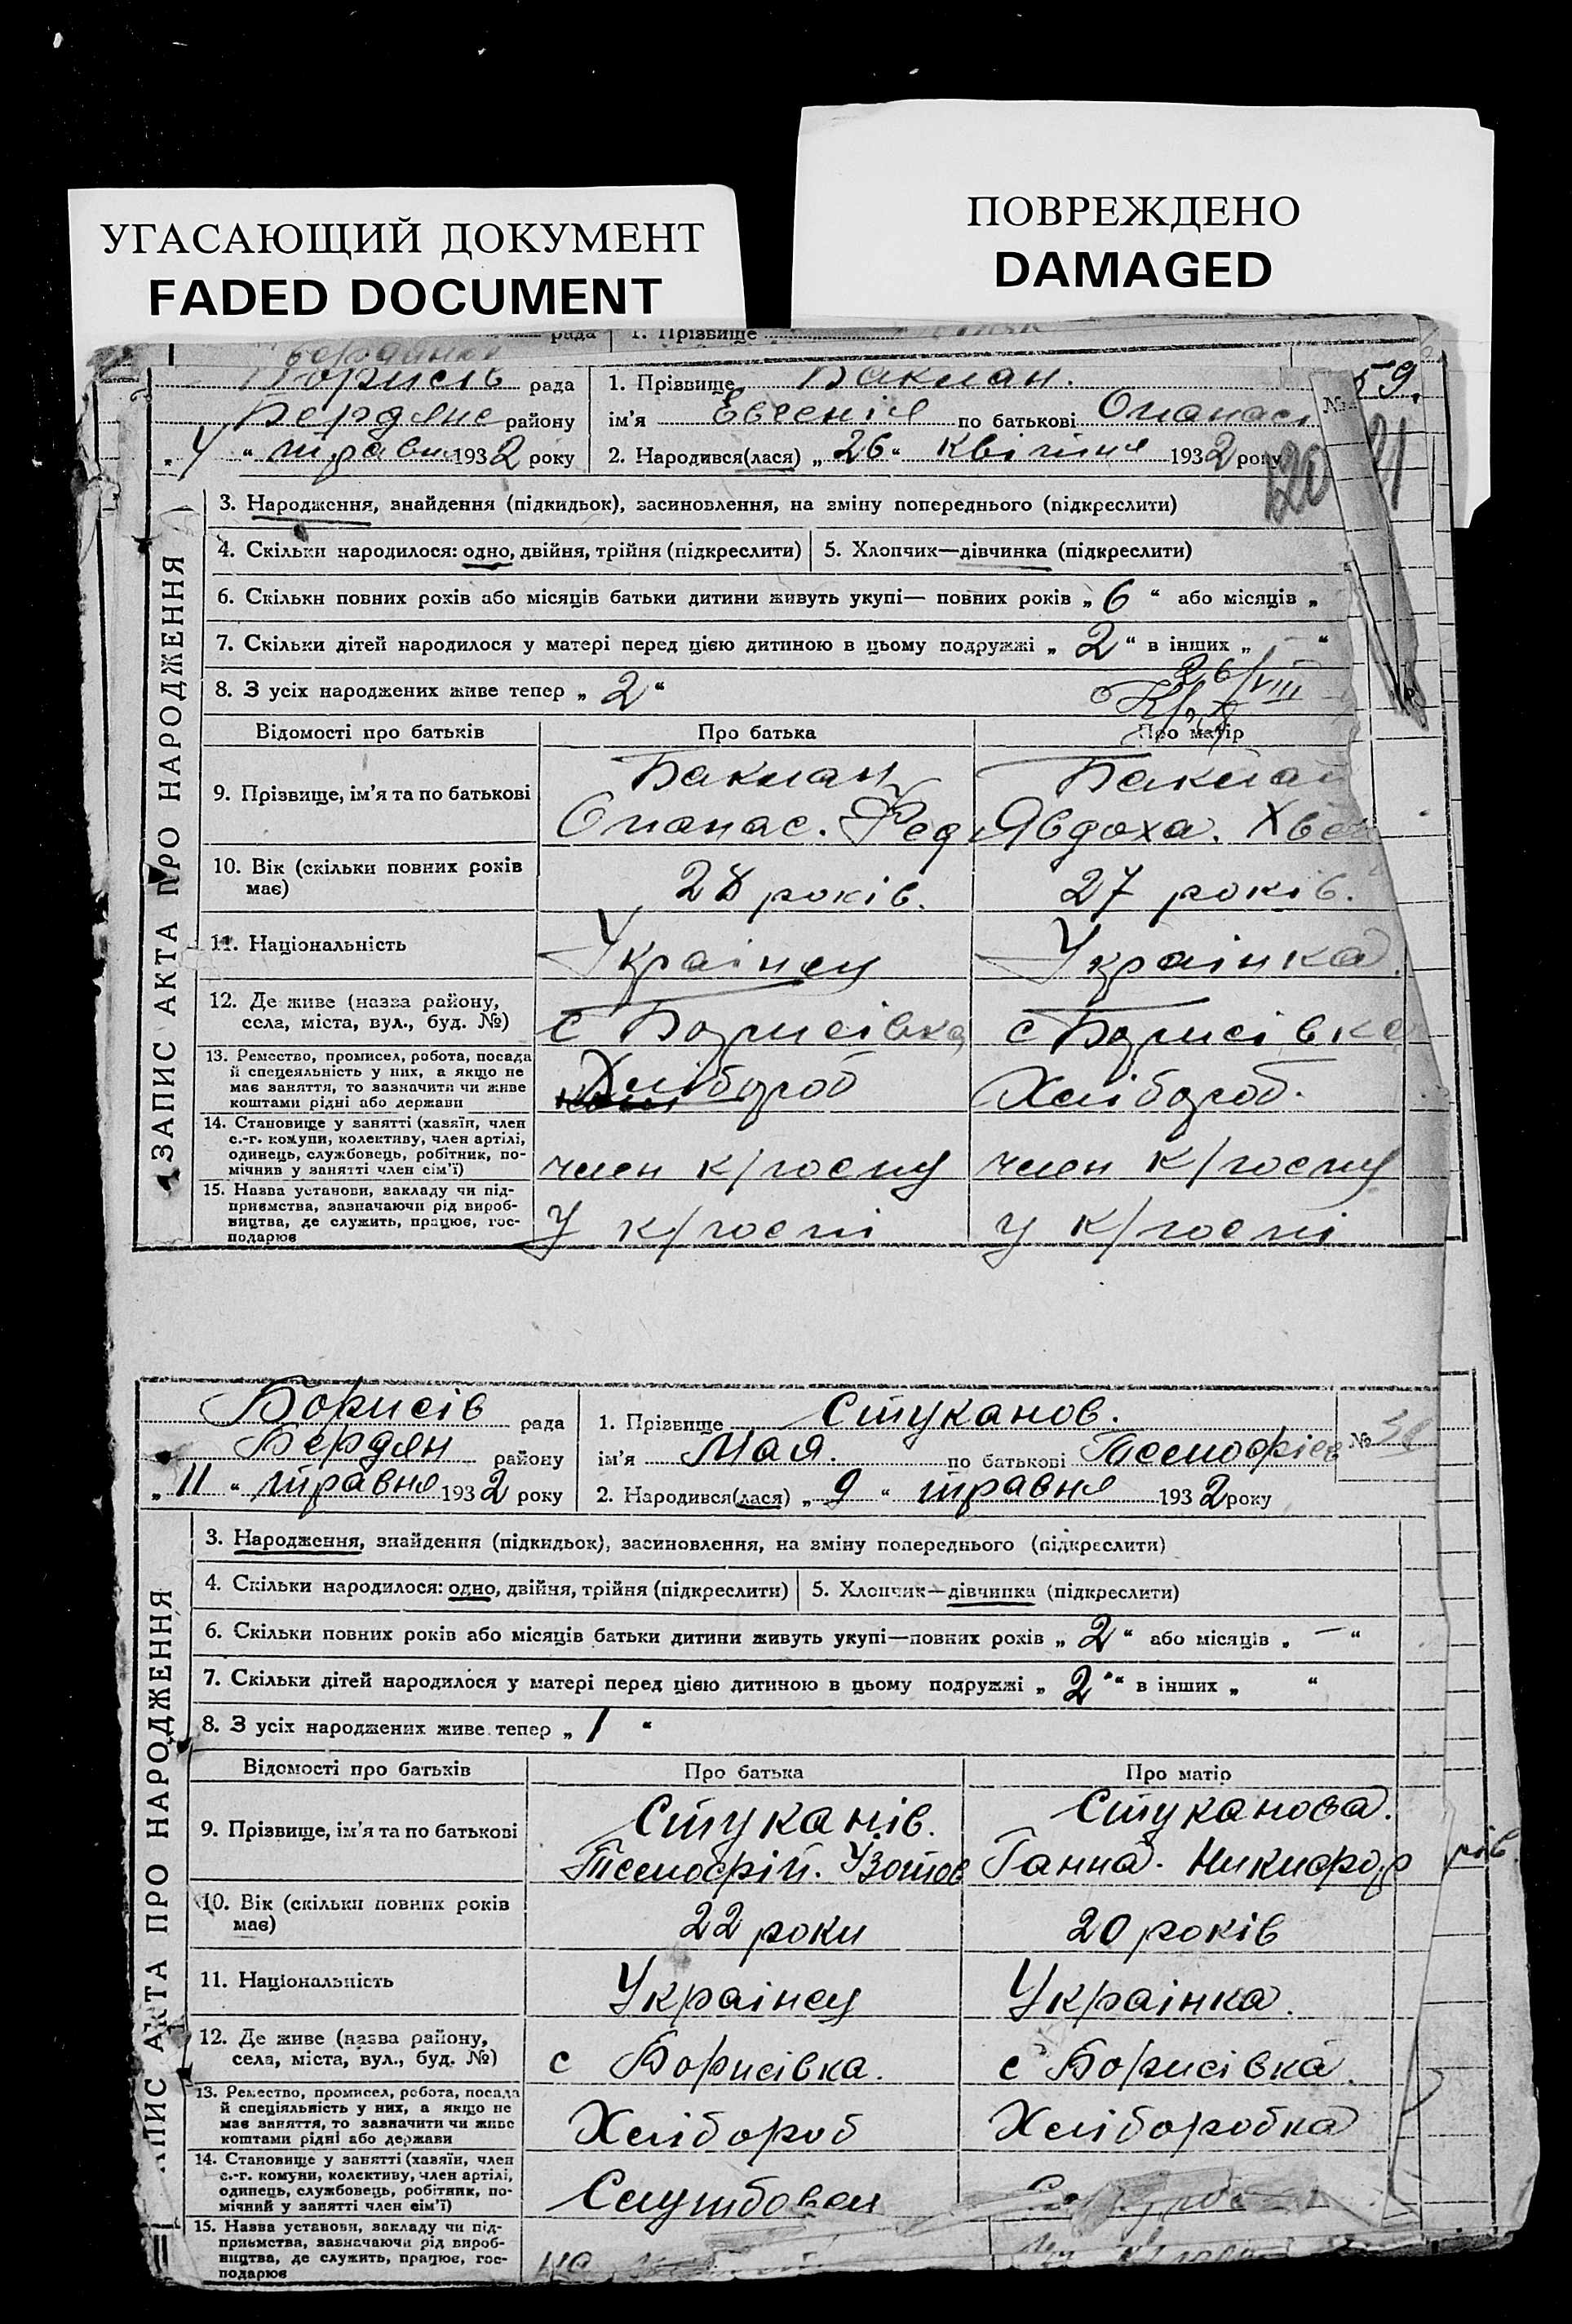 УГАСАЮЩИЙ ДОКУМЕНТ
FADED DOCUMENT
ПОВРЕЖДЕНО
DAMAGED
рада 1. Прізвище
Борисів рада 1. Прізвище Бакман.
Бердяне району ім'я Евгенія по батькові Опанасі №
„4“ травня 1932 року 2. Народився(лася) „26“ квітня 1932 року
59.
120 21
ЗАПИС АКТА ПРО НАРОДЖЕННЯ
3. Народження, знайдення (підкидьок), засиновлення, на зміну попереднього (підкреслити)
4. Скільки народилося: одно, двійня, трійня (підкреслити) 5. Хлопчик—дівчинка (підкреслити)
6. Скільки повних років або місяців батьки дитини живуть укупі— повних років „6“ або місяців „
7. Скільки дітей народилося у матері перед цією дитиною в цьому подружжі „2“ в інших „ – “
8. З усіх народжених живе тепер „2“
26/VIII
Відомості про батьків Про батька Про матір
9. Прізвище, ім'я та по батькові Бакман Бакман
Опанас. Фед Явдоха. Хвед
10. Вік (скільки повних років має) 28 років. 27 років.
11. Національність Українец Українка.
12. Де живе (назва району, села, міста, вул., буд. №) с Борисівка с Борисівка
13. Ремество, промисел, робота, посада й спецеяльність у них, а якщо не має заняття, то зазначити чи живе коштами рідні або держави Хлібороб Хлібороб.
14. Становище у занятті (хазяїн, член с.-г. комуни, колективу, член артілі, одинець, службовець, робітник, помічнив у занятті член сім'ї) член к/госпу член к/госпу
15. Назва установи, закладу чи підприємства, зазначаючи рід виробництва, де служить, працює, господарює У к/госпі у к/госпі
Борисів рада 1. Прізвище Стуканов. №
Бердян району ім'я Мая. по батькові Темофієв
„11“ травня 1932 року 2. Народився(лася) „9“ травня 1932 року
ЗАПИС АКТА ПРО НАРОДЖЕННЯ
3. Народження, знайдення (підкидьок), засиновлення, на зміну попереднього (підкреслити)
4. Скільки народилося: одно, двійня, трійня (підкреслити) 5. Хлопчик—дівчинка (підкреслити)
6. Скільки повних років або місяців батьки дитини живуть укупі—повних років „2“ або місяців „ – “
7. Скільки дітей народилося у матері перед цією дитиною в цьому подружжі „2“ в інших „ “
8. З усіх народжених живе тепер „1“
Відомості про батьків Про батька Про матір
9. Прізвище, ім'я та по батькові Стуканів. Стуканова.
Темофій. Ізотов Ганна. Никифор рів.
10. Вік (скільки повних років має) 22 роки 20 років
11. Національність Українец Українка.
12. Де живе (назва району, села, міста, вул., буд. №) с Борисівка. с Борисівка.
13. Ремество, промисел, робота, посада й спеціяльність у них, а якщо не має заняття, то зазначити чи живе коштами рідні або держави Хлібороб Хліборобка
14. Становище у занятті (хазяїн, член с.-г. комуни, колективу, член артілі, одинець, службовець, робітник, помічний у занятті член сім'ї) Службовец
15. Назва установи, закладу чи підприємства, зазначаючи рід виробництва, де служить, працює, господарює